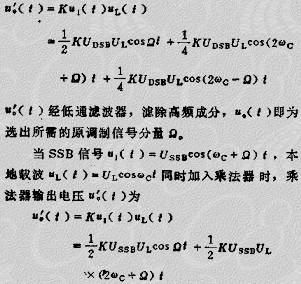 u′ₒ(t)=Kuᵢ(t)u_L(t)
=\frac{1}{2}KU_{DSB}U_LcosΩt+\frac{1}{4}KU_{DSB}U_Lcos(2ω_C
+Ω)t+\frac{1}{4}KU_{DSB}U_Lcos(2ω_C−Ω)t
u′ₒ(t)经低通滤波器，滤除高频成分，uₒ(t)即为
选出所需的原调制信号分量Ω。
当SSB信号uᵢ(t)=U_{SSB}cos(ω_C+Ω)t，本
地载波u_L(t)=U_Lcosω_Ct同时加入乘法器时，乘
法器输出电压u′ₒ(t)为
u′ₒ(t)=Kuᵢ(t)u_L(t)
=\frac{1}{2}KU_{SSB}U_LcosΩt+\frac{1}{2}KU_{SSB}U_L
×(2ω_C+Ω)t